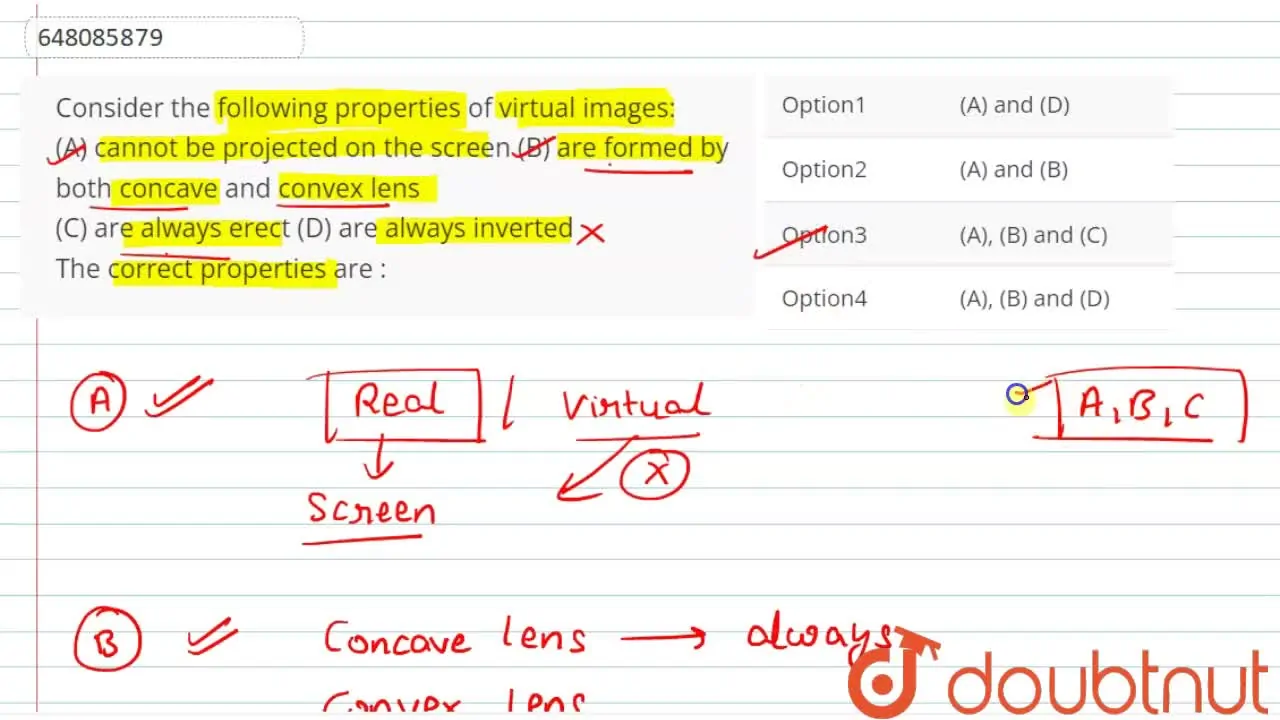 648085879
Consider the following properties of virtual images:
(A) cannot be projected on the screen (B) are formed by
both concave and convex lens
(C) are always erect (D) are always inverted X
The correct properties are :
Option1 (A) and (D)
Option2 (A) and (B)
Option3 (A), (B) and (C)
Option4 (A), (B) and (D)
A Real / Virtual A, B, C
X
Screen
B Concave lens → always
Convex lens
doubtnut